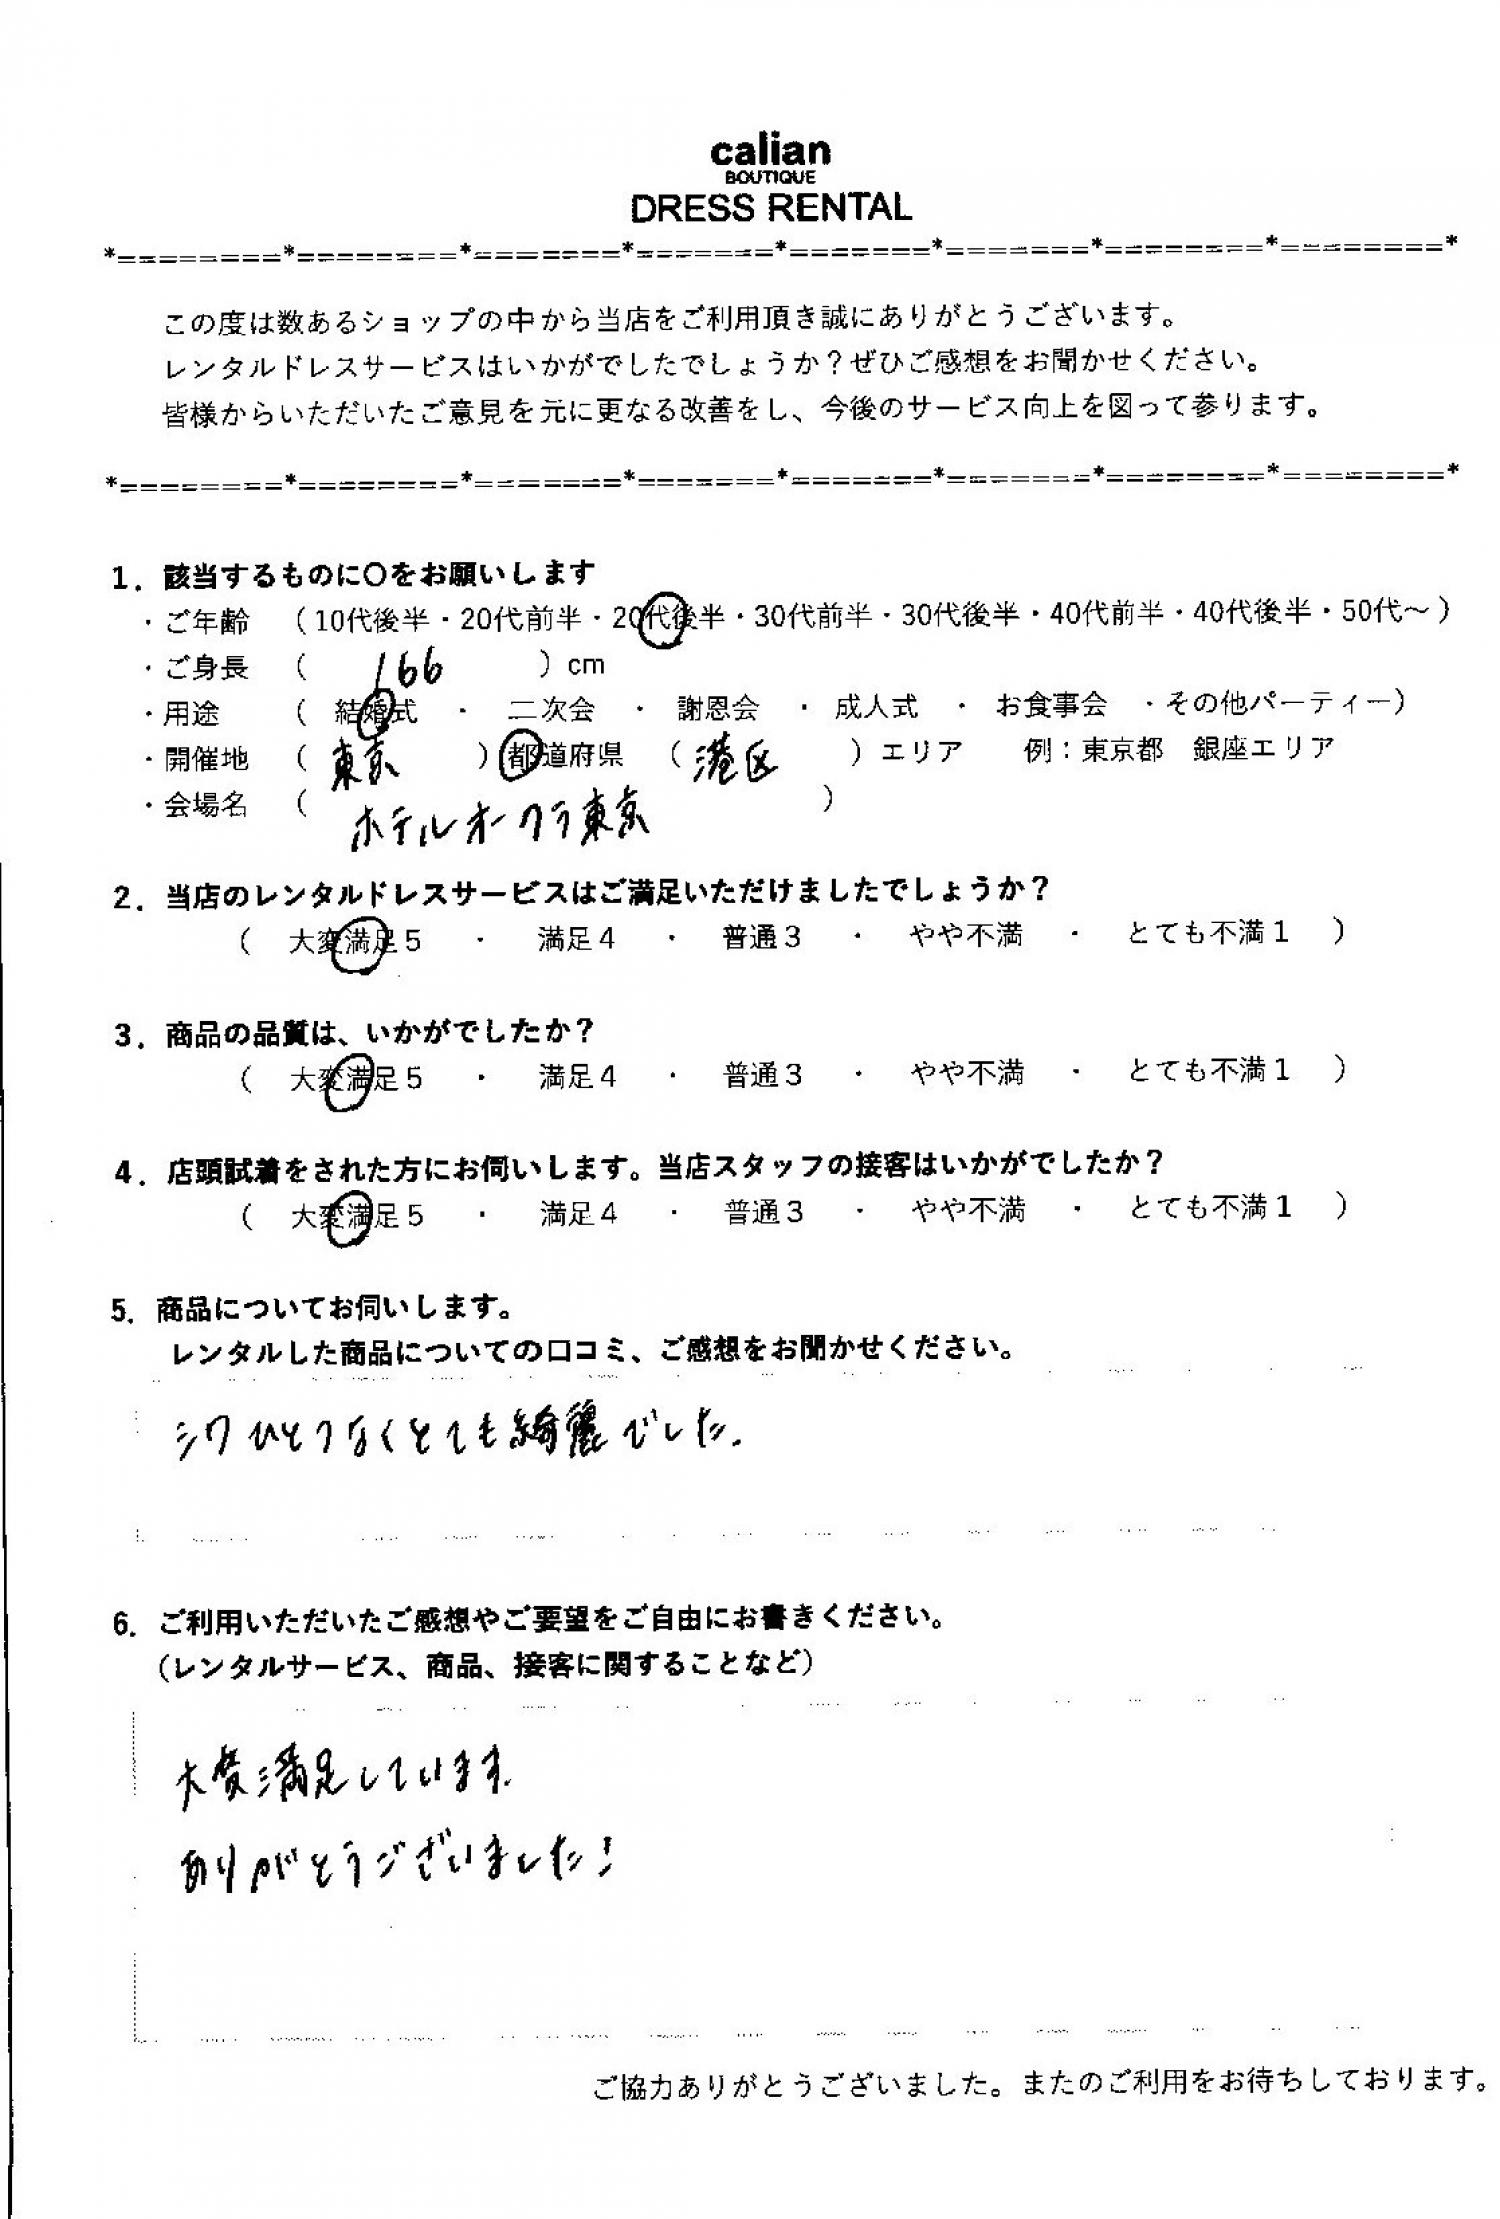 calian
BOUTIQUE
DRESS RENTAL
*========*========*=======*=======*=======*=======*========*========*
この度は数あるショップの中から当店をご利用頂き誠にありがとうございます。
レンタルドレスサービスはいかがでしたでしょうか？ぜひご感想をお聞かせください。
皆様からいただいたご意見を元に更なる改善をし、今後のサービス向上を図って参ります。
*========*========*=======*=======*=======*=======*========*========*
1．該当するものに〇をお願いします
・ご年齢 （10代後半・20代前半・20代後半・30代前半・30代後半・40代前半・40代後半・50代～）
・ご身長 （ 166 ）cm
・用途 （ 結婚式 ・ 二次会 ・ 謝恩会 ・ 成人式 ・ お食事会 ・その他パーティー）
・開催地 （ 東京 ）都道府県 （ 港区 ）エリア 例：東京都 銀座エリア
・会場名 （ ホテルオークラ東京 ）
2．当店のレンタルドレスサービスはご満足いただけましたでしょうか？
（ 大変満足5 ・ 満足4 ・ 普通3 ・ やや不満 ・ とても不満1 ）
3．商品の品質は、いかがでしたか？
（ 大変満足5 ・ 満足4 ・ 普通3 ・ やや不満 ・ とても不満1 ）
4．店頭試着をされた方にお伺いします。当店スタッフの接客はいかがでしたか？
（ 大変満足5 ・ 満足4 ・ 普通3 ・ やや不満 ・ とても不満1 ）
5．商品についてお伺いします。
レンタルした商品についての口コミ、ご感想をお聞かせください。
シワひとつなくとても綺麗でした.
6．ご利用いただいたご感想やご要望をご自由にお書きください。
（レンタルサービス、商品、接客に関することなど）
大変満足しています.
ありがとうございました!
ご協力ありがとうございました。またのご利用をお待ちしております。